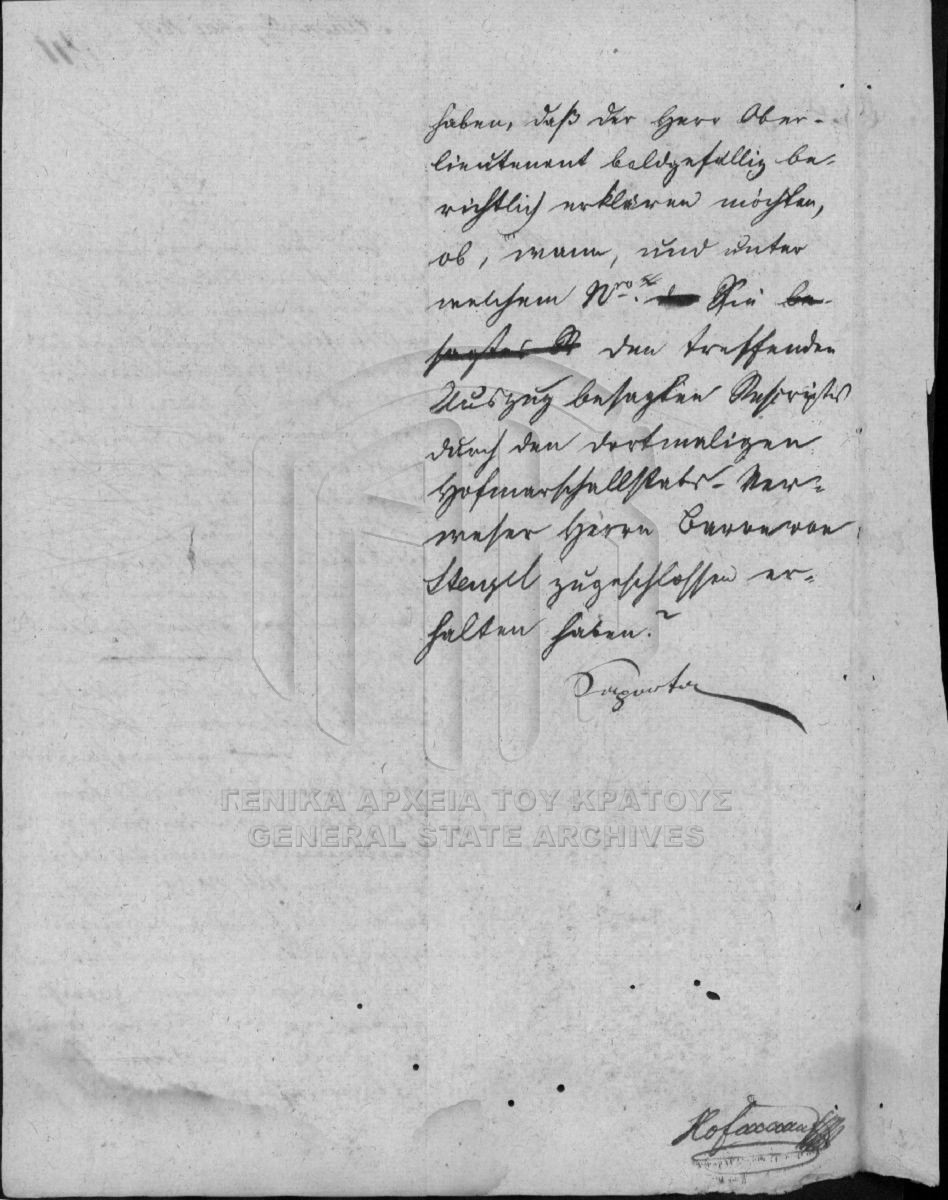 haben, daß der Herr Ober-
lieutenant baldgefällig be-
richtlich erklären möchten,
ob, wann, und unter
welchem Nro. Sie be-
sagtes den treffenden
Auszug besagten Rescriptes
durch den dortmaligen
Hofmarschallstabs-Ver-
weser Herrn Baron von
Stengel zugeschlossen er-
halten haben.?
Saporta
ΓΕΝΙΚΑ ΑΡΧΕΙΑ ΤΟΥ ΚΡΑΤΟΥΣ
GENERAL STATE ARCHIVES
Hofmann